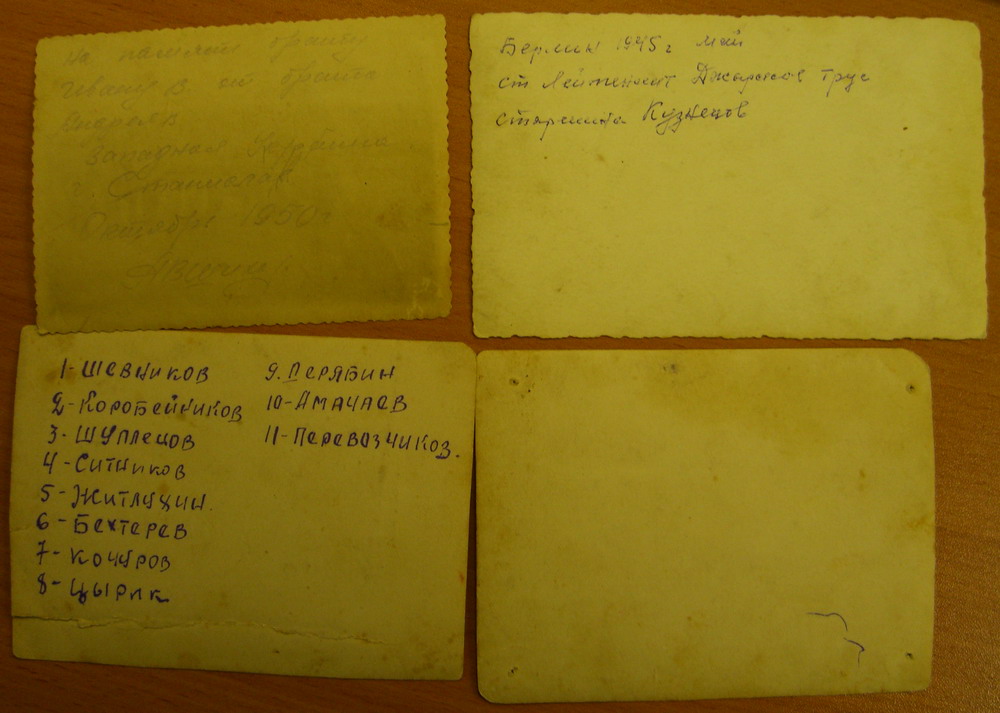 на память брату
Ивану В. от брата
Андрея В.
Западная Украина
г. Станислав
Октябрь 1950 г
Берлин 1945 г май
ст лейтенант
старшина Кузнецов
1- Шевников
2- Коробейников
3- Шуплецов
4- Ситников
5- Житлухин.
6- Бехтерев
7- Кочуров
8- Цырик
9. Перябин
10- Амачаев
11- Перевозчиков.